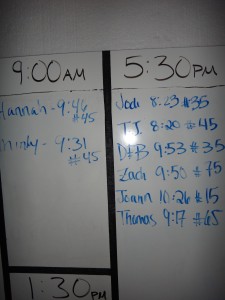 9:00AM
Hannah - 9:46
#45
9:31
#45
5:30PM
Jodi 8:23 #35
T.J. 8:20 #45
D&B 9:53 #35
Zach 9:50 #75
Joann 10:26 #15
Thomas 9:17 #65
1:30PM